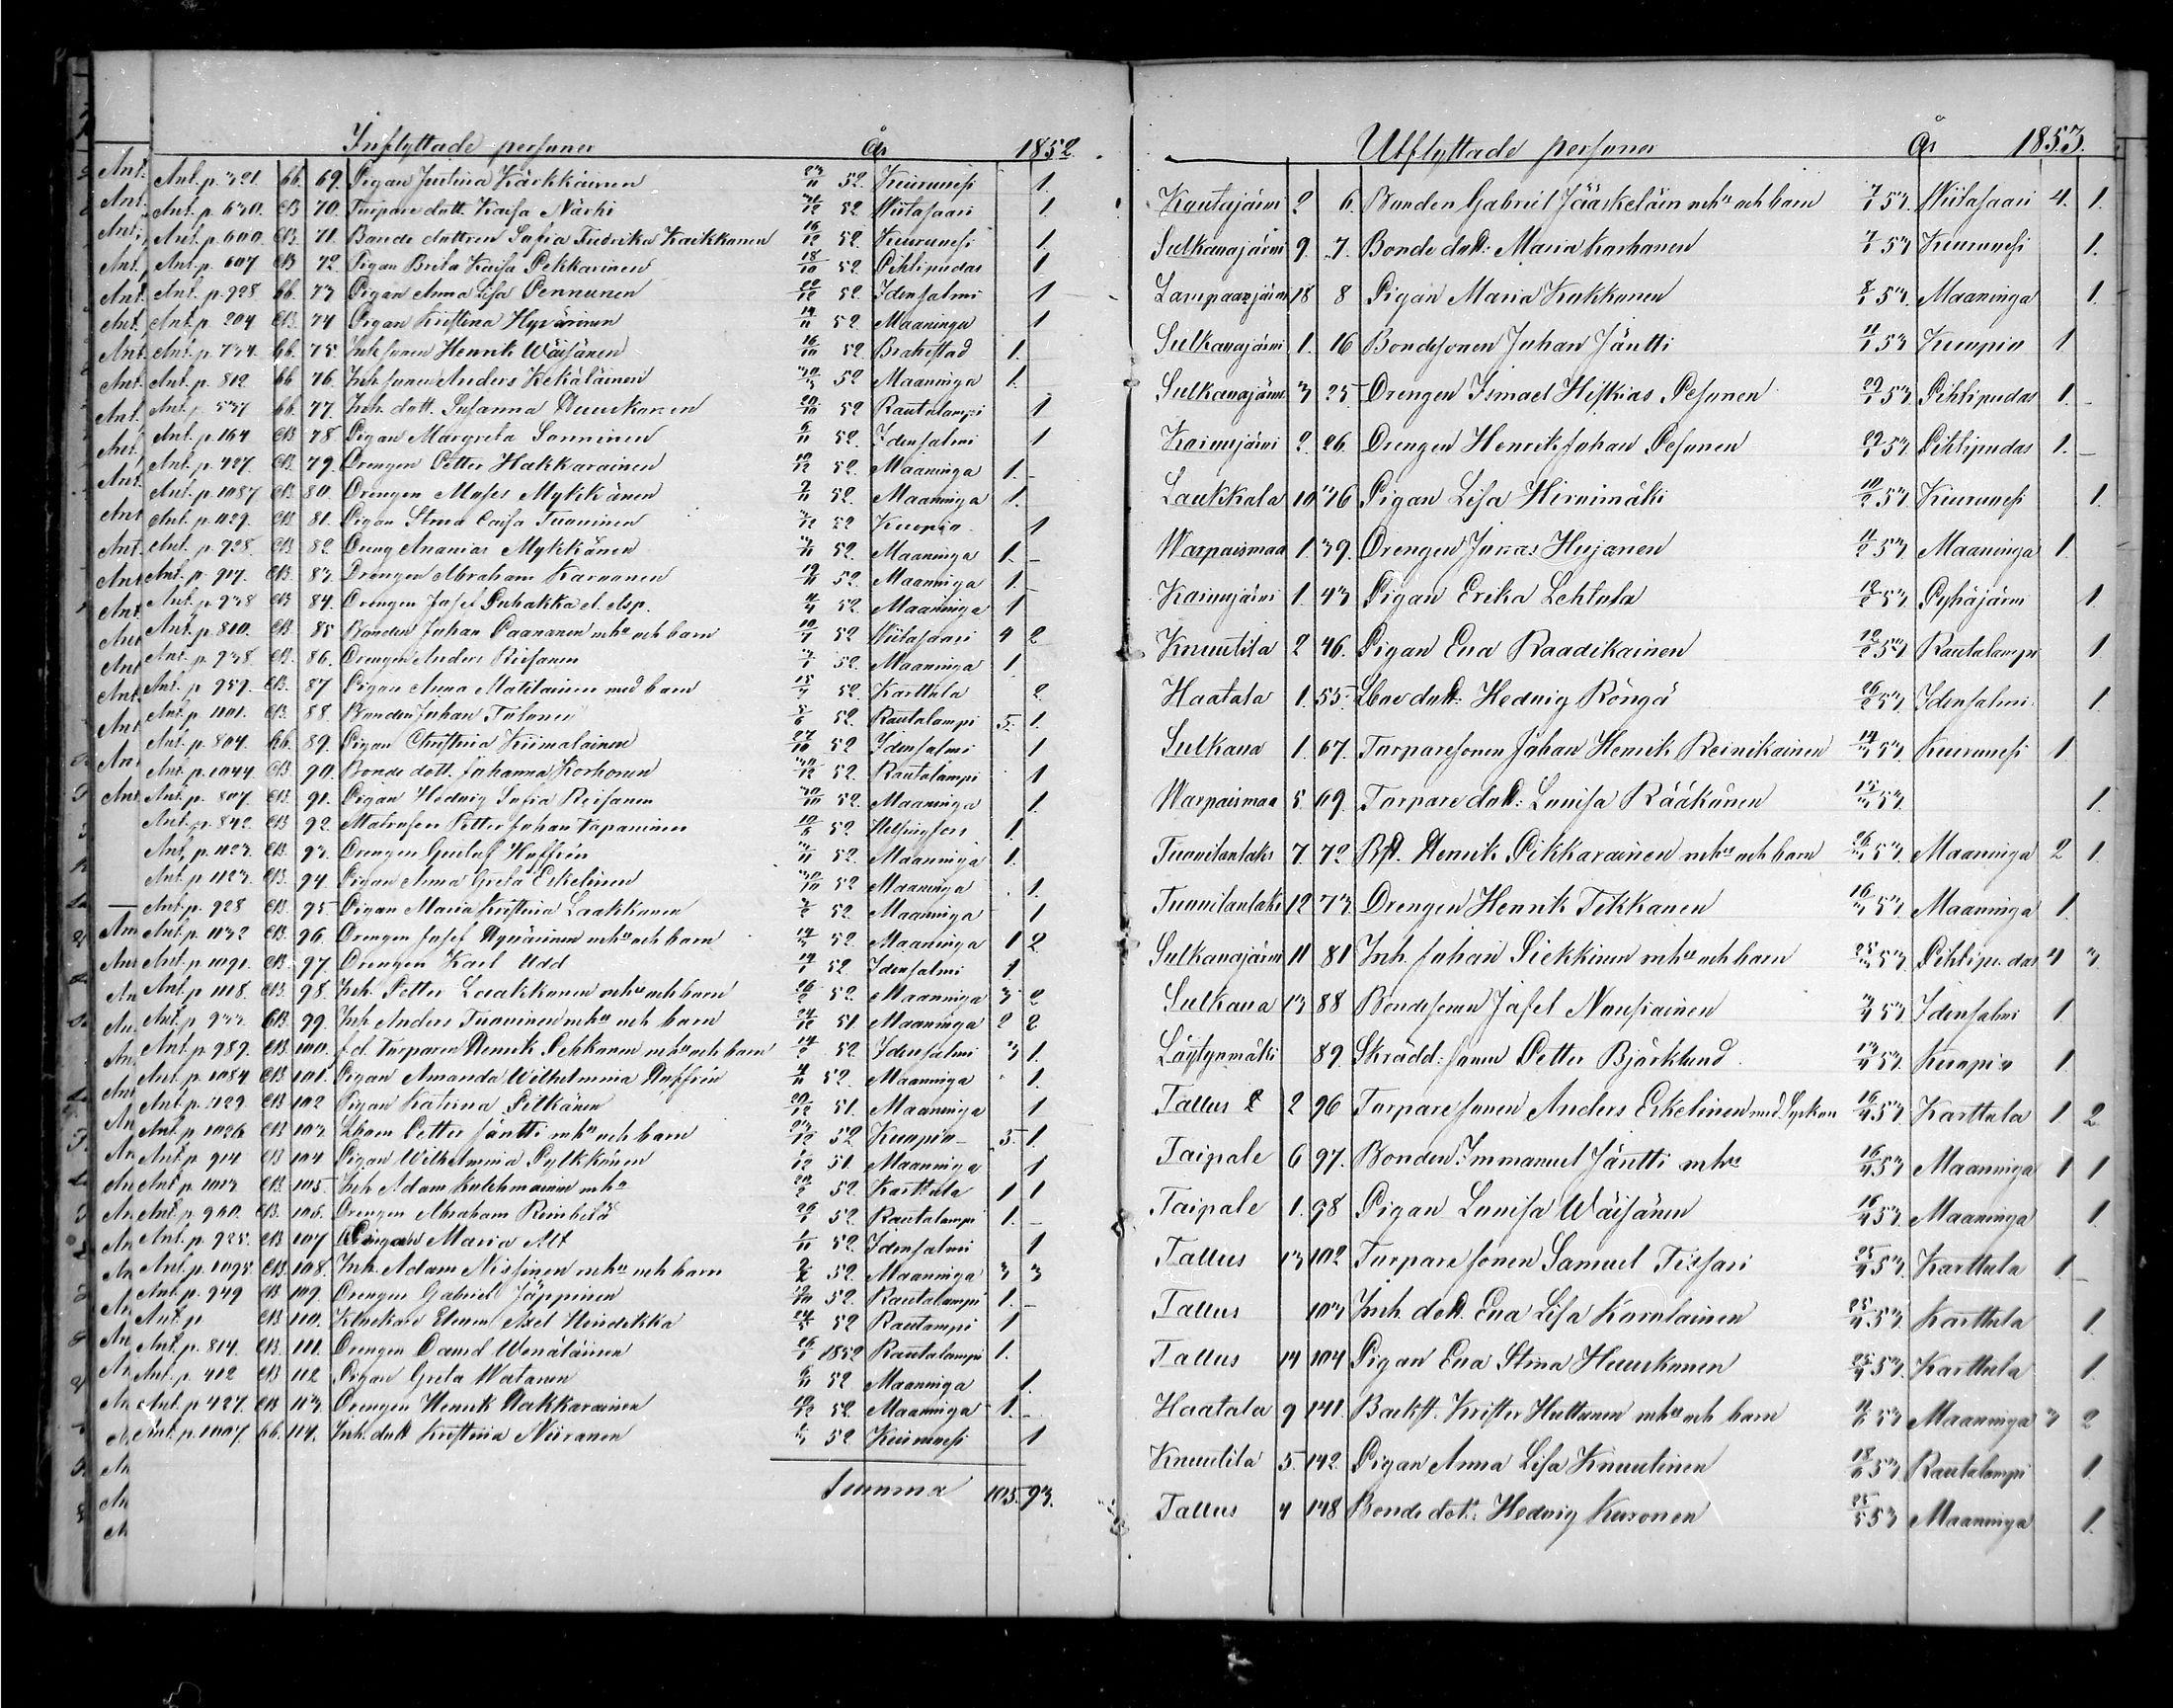 Inflyttade personer År 1852.
Ant. p. 321. bb. 69. Pigan Justina Kärkkäinen 23/11 52. Kiuruvesi 1.
Ant. p. 630. CB 70. Torpare dott. Kaisa Närhi 52 Wiitasaari 1.
Ant. p. 600. CB. 71. Bonde dottren Sofia Fredrika Kaikkonen 16/12 52. Kiuruvesi 1
Ant. p. 607 CB 72. Pigan Brita Kaisa Pekkarinen 18/10 52. Pihlipudas 1
Ant. p. 928 bb. 73 Pigan Anna Lisa Pennanen 22/12 52. Idensalmi 1
Ant. p. 204 CB. 74 Pigan Kristina Hyvärinen 14/11 52. Maaninga 1
Ant. p. 734. bb. 75. Inh sonen Henrik Wäisänen 16/10 52 Brahestad 1.
Ant. p. 812 bb 76. Inh. sonen Anders Kekäläinen 52 Maaninga 1.
Ant. p. 537 bb. 77. Inh. dott. Susanna Huuskonen 20/10 52 Rautalampi 1
Ant. p. 164 CB 78 Pigan Margreta Sonninen 6/11 52. Idensalmi 1
Ant. p. 427. CB. 79. Drengen Petter Hakkarainen 10/12 52. Maaninga 1.
Ant. p. 1087 CB 80. Drengen Moses Mykkänen 2/11 52. Maaninga 1.
Ant. p. 1129. CB. 81. Pigan Stina Caisa Tuovinen 52 Kuopio 1
Ant. p. 928. CB 82. Dreng Ananias Mykkänen 52. Maaninga 1.
Ant. p. 917. CB. 83. Drengen Abraham Karvonen 19/11 52. Maaninga 1.
Ant. p. 938 CB 84. Drengen Josef Puhakka 52. Maaninga 1
Ant. p. 810. CB 85 Bonden Johan Paananen m hu och barn 52 Wiitasaari 4 2
Ant. p. 938. CB. 86. Drengen Anders Reisanen 52. Maaninga 1.
Ant. p. 959. CB. 87 Pigan Anna Matilainen med barn 52. Karttula 2
Ant. p. 1101. CB. 88. Bonden Johan Tolonen 52. Rautalampi 5. 1.
Ant. p. 804. bb. 89. Pigan Christina Kiimalainen 27/10 52 Idensalmi 1
Ant. p. 1044. CB. 90. Bonde dott. Johanna Korhonen 52. Rautalampi 1
Ant. p. 807. CB. 91. Pigan Hedvig Sofia Reisanen 52. Maaninga 1.
Ant. p. 842. CB 92. Matrosen Petter Johan Tapaninen 52. Helsingfors 1.
Ant. p. 1123. CB. 93. Drengen Gustaf Hoffrén 52. Maaninga 1.
Ant. p. 1123. CB. 94. Pigan Anna Greta Eskelinen 52 Maaninga 1.
Ant. p. 928 CB. 95. Pigan Maria Kristina Laakkonen 52. Maaninga 1
Ant. p. 1132 CB. 96. Drengen Josef Hyvärinen m hu och barn 52. Maaninga 1 2
Ant. p. 1091. CB. 97. Drengen Karl Udd 52. Idensalmi 1
Ant. p. 1118. CB. 98. Inh. Petter Laakkonen m hu och barn 52. Maaninga 3 2
Ant. p. 933 CB 99. Inh Anders Tuovinen m hu och barn 24/12 51. Maaninga 2 2
Ant. p. 989. CB. 100. f.d. Torparen Henrik Pekkonen m hu och barn 52. Idensalmi 3 1.
Ant. p. 1084 CB 101. Pigan Amanda Wilhelmina Hoffrén 4/11 52. Maaninga 1.
Ant. p. 1129. CB 102 Pigan Katrina Pitkänen 20/12 51. Maaninga 1
Ant. p. 1026 CB 103. Petter Jäntti m hu och barn 52 Kuopio 5. 1.
Ant. p. 914 CB 104 Pigan Wilhelmina Pylkkänen 51. Maaninga 1
Ant. p. 1013 CB. 105. Inh Adam Kulehmainen m hu 52. Karttula 1 1
Ant. p. 960. CB. 106. Drengen Abraham 52. Rautalampi 1.
Ant. p. 925. CB. 107 Pigan Maria Alt 52. Idensalmi 1
Ant. p. 1095 CB. 108. Inh. Adam Nissinen m hu och barn 52. Maaninga 3 3
Ant. p. 949 CB. 109. Drengen Gabriel Jäppinen 52. Rautalampi 1.
Ant. p CB 110. Klockare Eleven Axel Heindekka 52 Rautampi 1
Ant. p. 814. CB. 111. Drengen David Wenäläinen 1852 Rautalampi 1.
Ant. p. 412 CB 112 Pigan Greta Watanen 52 Maaninga 1.
Ant. p. 427. CB 113. Drengen Henrik Hakkarainen 52. Maaninga 1.
Ant. p. 1007 bb. 114. Inh. dott Kristina Niiranen 52 Kiuruvesi 1
Summa 105. 93.
Utflyttade personer År 1853.
Kautajärvi 2 6. Bonden Gabriel Jääskeläin m hu och barn 7/1 53. Wiitasaari 4. 1.
Sulkavajärvi 9. 7. Bonde dott: Maria Korhonen 7/1 53 Kiuruvesi 1.
Lampaanjärvi 18 8 Pigan Maria Kukkonen 8/1 53. Maaninga 1.
Sulkavajärvi 1. 16 Bondesonen Johan Jäntti 11/1 53 Kuopio 1
Sulkavajärvi 3 25. Drengen Ismael Hiskias Pesonen 29/1 53 Pihlipudas 1.
Koivujärvi 2. 26. Drengen Henrik Johan Pesonen 29/1 53. Pihlipudas 1.
Laukkala 10 36 Pigan Lisa Hirvimäki 10/2 53. Kiuruvesi 1.
Warpaismaa 1. 39. Drengen Jonas Hujanen 11/2 53 Maaninga 1.
Koivujärvi 1. 43 Pigan Erika Lehtola 12/2 53 Pyhäjärvi 1
Knuutila 2 46. Pigan Eva Raadikainen 12/2 53 Rautalampi 1
Haatala 1. 55. dott: Hedvig Röngä 26/2 53. Idensalmi 1.
Sulkava 1. 67. Torparesonen Johan Henrik Reinikainen 14/3 53 Kiuruvesi 1
Warpaismaa 5. 69. Torpare dott: Lovisa Rääkänen 15/3 53. 1.
Tuovilanlaks 7. 72 Bst. Henrik Pikkarainen m hu och barn 26/3 53. Maaninga 2 1.
Tuovilanlaks 12 73. Drengen Henrik Tikkanen 16/3 53 Maaninga 1.
Sulkavajärvi 11 81 Inh. Johan Siekkinen m hu och barn 25/3 53. Pihlipudas 4 3.
Sulkava 13 88 Bondesonen Josef Nousiainen 3/4 53 Idensalmi 1.
Löytynmäki 89. Skrädd: sonen Petter Björklund 13/4 53. Kuopio 1
Tallus 2 96 Torpare sonen Anders Eskelinen med Syskon 16/4 53 Karttula 1. 2
Taipale 6 97. Bonden Immanuel Jäntti m hu 16/4 53 Maaninga 1 1
Taipale 1. 98 Pigan Lovisa Wäisänen 16/4 53 Maaninga 1.
Tallus 13 102 Torpare sonen Samuel Tissari 25/4 53. Karttula 1.
Tallus 103 Inh. dott. Eva Lisa Korolainen 25/4 53. Karttula 1.
Tallus 14 104 Pigan Eva Stina Huuskonen 25/4 53 Karttula 1.
Haatala 9 141. Backst. Krister Huttunen m hu och barn 53 Maaninga 3 2
Knuutila 5. 142. Pigan Anna Lisa Knuutinen 53 Rautalampi 1.
Tallus 4 148 Bonde dott: Hedvig Kuronen 25/5 53 Maaninga 1.